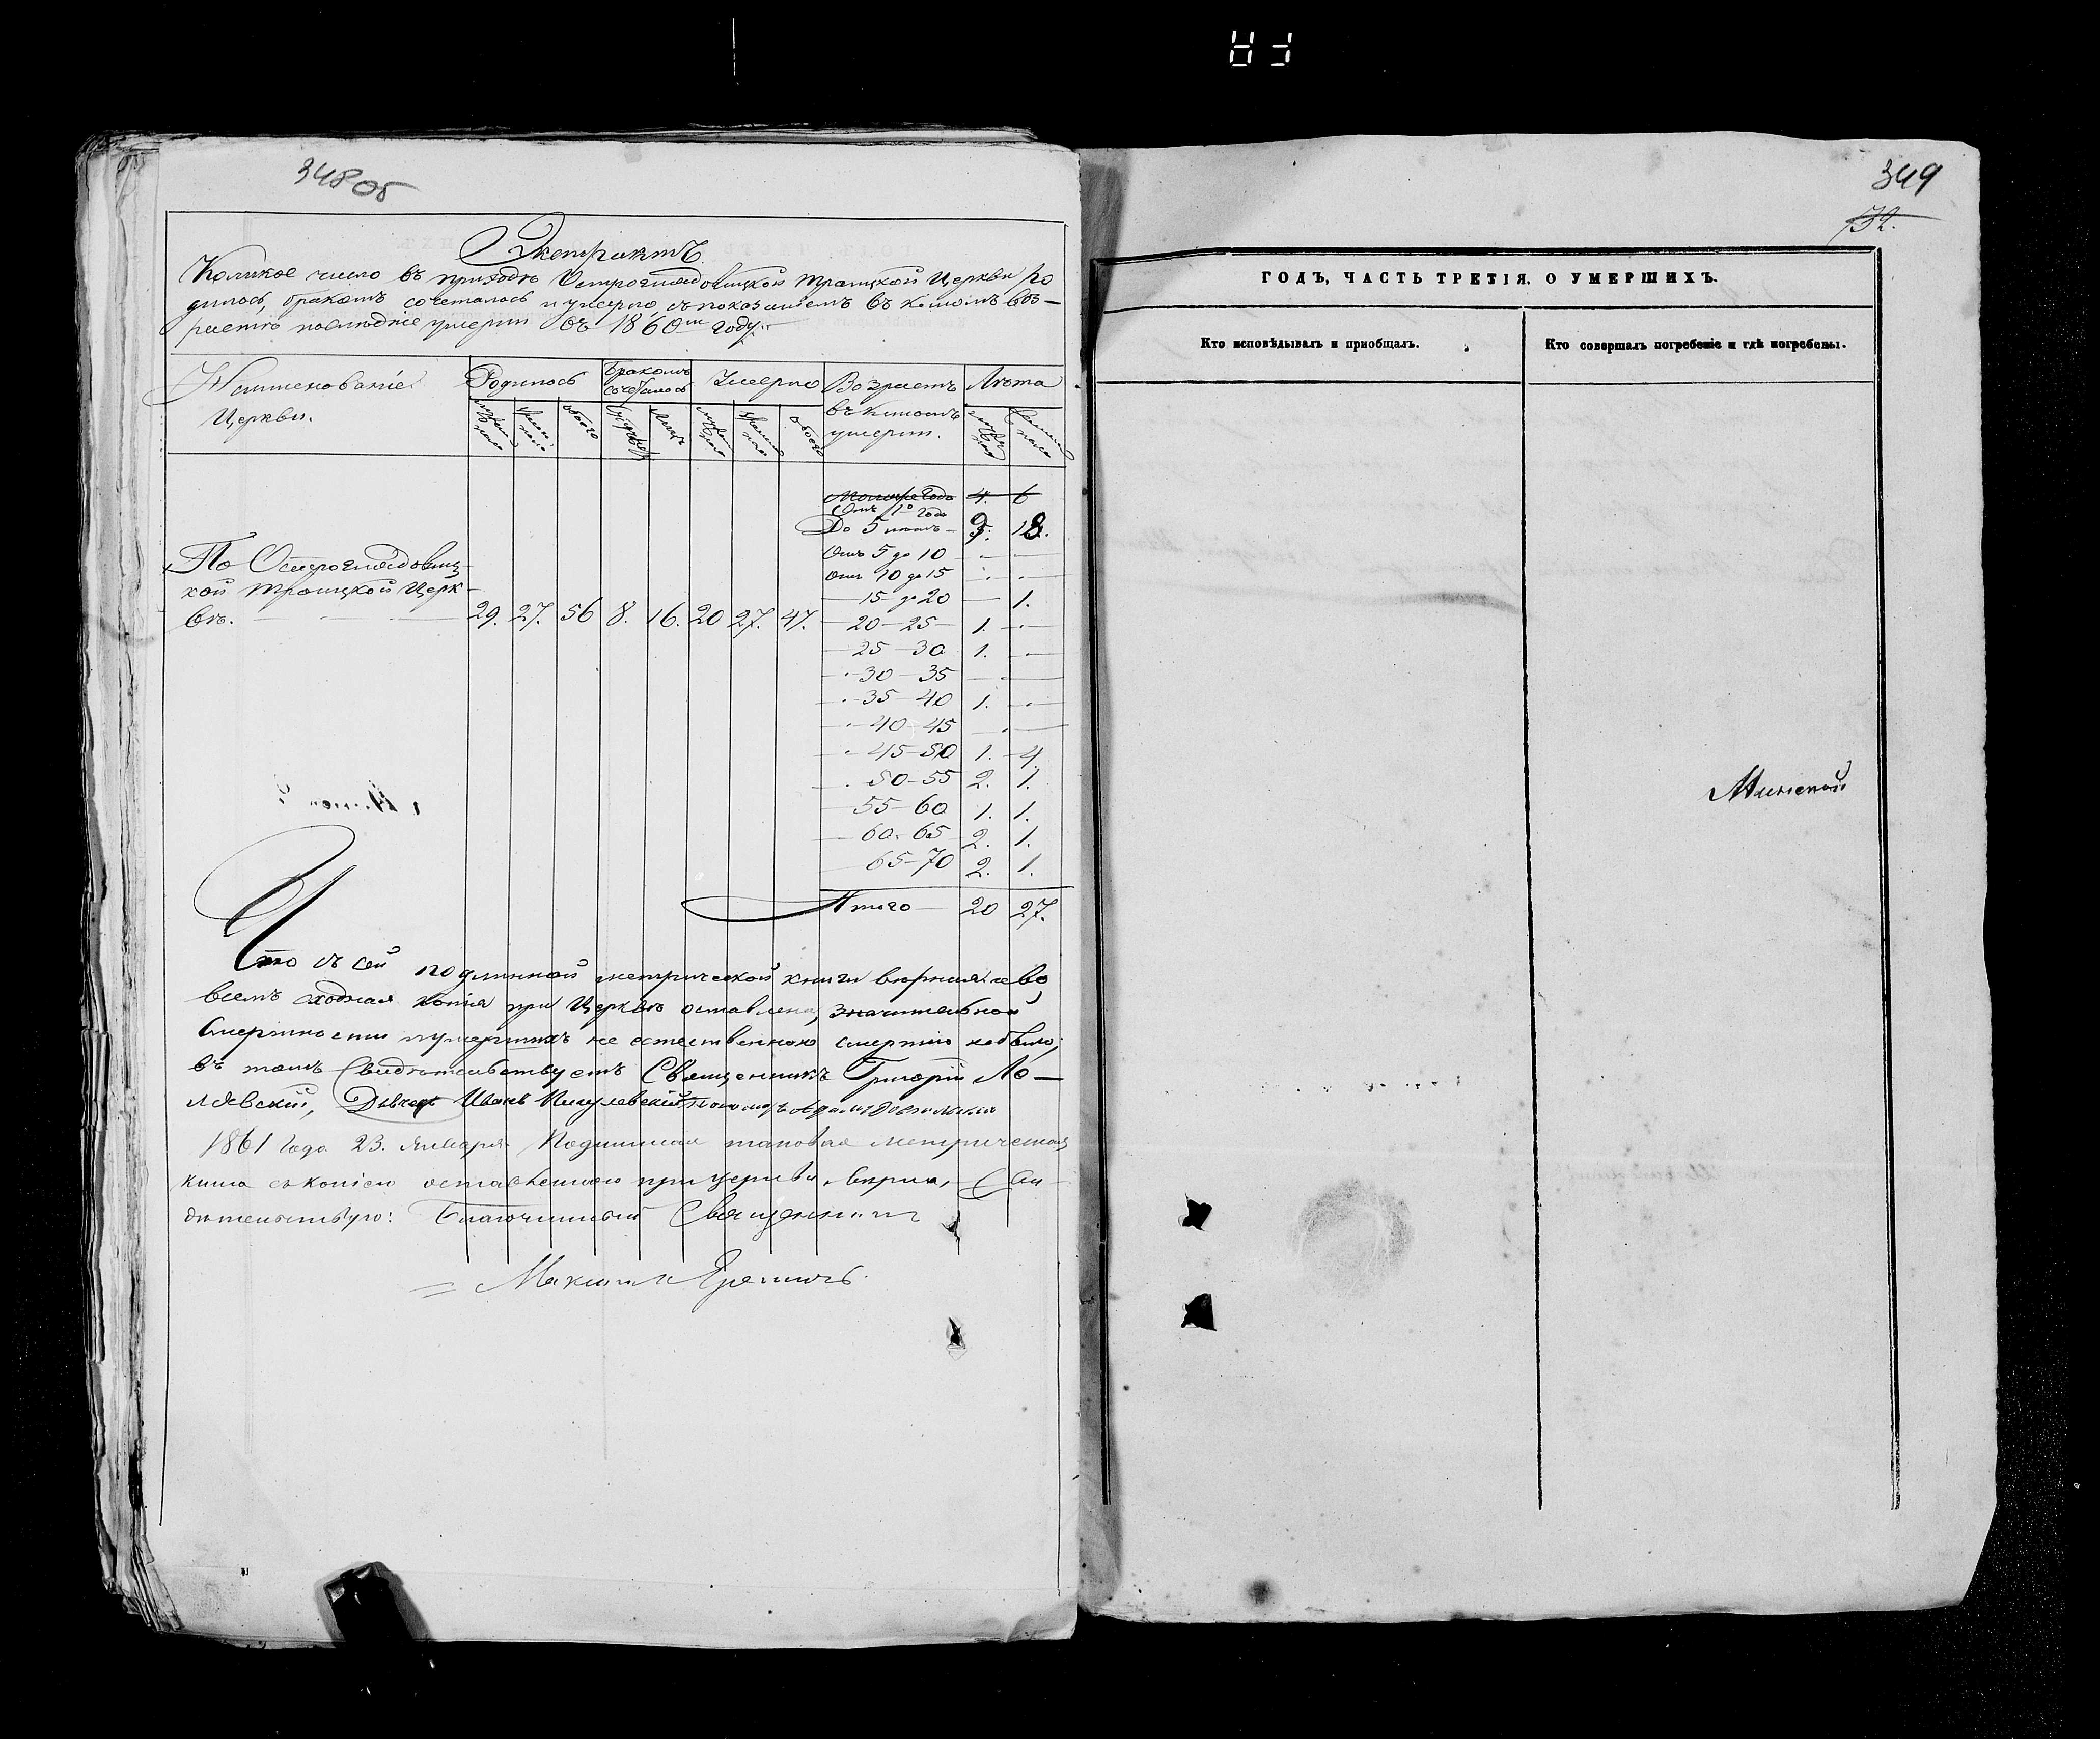 348 об
Экстрактъ
Коликое число въ приходѣ Остроглядовицкой Троицкой Церкви ро
дилось, бракомъ сочеталось и умерло, съ показаніемъ въ какомъ воз-
растѣ послѣдніе умерли въ 1860м году.
Наименованіе Церкви.
Родилось
Бракомъ сочеталось
Умерло
Возрастъ въ какомъ умерли.
Лѣта
обоего
обоего
Моложе года 4. 6
Отъ 1го года
До 5 лѣтъ 9. 18.
Отъ 5 до 10 — —
Отъ 10 до 15 — —
15 до 20 — 1.
20 — 25 1. —
25 — 30 1. —
30 — 35 — —
35 — 40 1. —
40 — 45 — —
45 — 50 1. 4.
50 — 55 2. 1.
55 — 60 1. 1.
60 — 65 2. 1.
65 — 70 2. 1.
Итого — 20 27.
По Острогляdовиц-
кой Троицкой Церк-
вѣ. — — — 29. 27. 56 8. 16. 20 27. 47.
Что съ сей подлинной метрической книги вѣрная и во
всемъ сходная копія при Церквѣ оставлена, значительной
смертности и умершихъ не естественною смертію не было,
въ томъ свидѣтельствуетъ Священникъ Григорій Ло-
Иванъ
1861 года 23. Января Подлинная таковая метрическая
книга съ копіею оставленною при церкви, вѣрна, Сви-
дѣтельствую: Благочинный Священникъ
Максим
349
132.
ГОДЪ, ЧАСТЬ ТРЕТІЯ, О УМЕРШИХЪ.
Кто исповѣдывалъ и пріобщалъ.
Кто совершалъ погребеніе и гдѣ погребены.
Минской